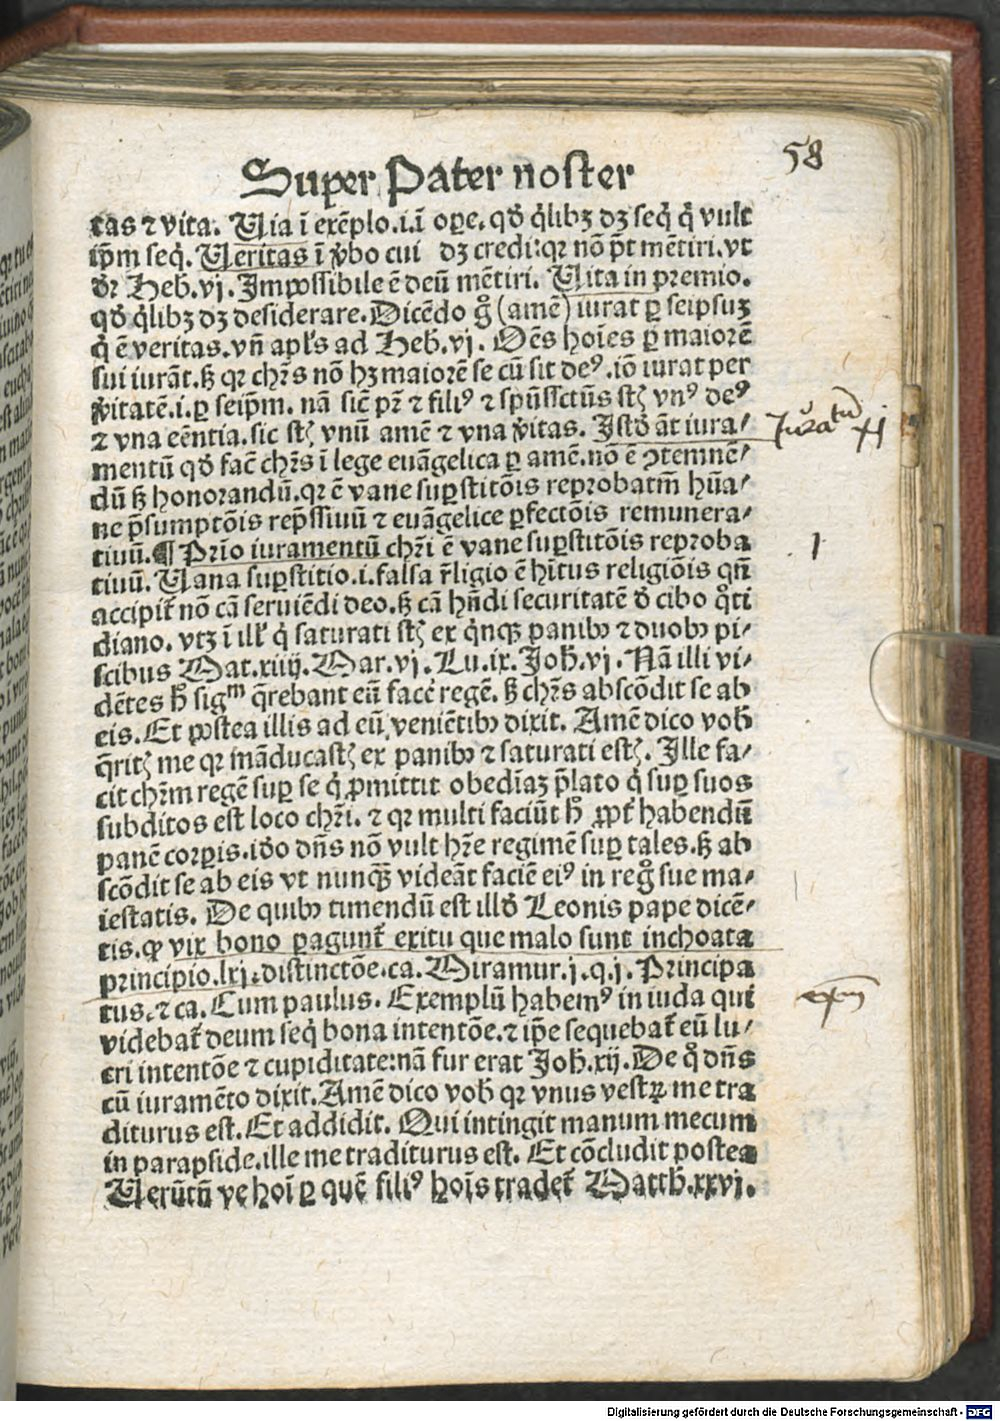 58
Super Pater noster
tas ⁊ vita. Uia ī exēplo.i.ī oꝑe. qḋ q̇libꝫ dꝫ seq̇ q̇ vult
ip̄m seq̇. Ueritas ī v̇bo cui dꝫ credi:qꝛ nō p̄t mētiri.vt
dꝛ Heb̄.vj. Impossibile ē deū mētiri. Uita in premio.
qḋ q̇libꝫ dꝫ desiderare. Dicēdo gͦ (amē) iurat ꝑ seipsuꝫ
q̇ ē veritas. vn̄ apl's ad Heb̄.vj. Oēs hoīes ꝑ maiorē
sui iurāt. ß qꝛ chr̄s nō hꝫ maiorē se cū sit deꝰ. iō iurat per
v̇itatē.i.ꝑ seip̄m. nā sic̄ pr̄ ⁊ filiꝰ ⁊ sp̄ūssctūs st̄ vnꝰ deꝰ
⁊ vna eēntia. sic st̄ vnū amē ⁊ vna v̇itas. Istḋ āt iura⸗
Juratū
xj
mentū qḋ fac̄ chr̄s ī lege euāgelica ꝑ amē. nō ē ↄtemnē⸗
dū ß honorandū. qꝛ ē vane suꝑstitōis reprobatm̄ hūa⸗
ne p̄sumptōis rep̄ssiuū ⁊ euāgelice ꝑfectōis remunera⸗
tiuū. ¶ Prīo iuramentū chr̄i ē vane suꝑstitōis reproba
1
tiuū. Uana suꝑstitio.i.falsa r̄ligio ē hītus religiōis qn̄
accipit̄ nō cā seruiēdi deo. ß cā hn̄di securitatē ḋ cibo qͦti
diano. vtꝫ ī ill' q̇ saturati st̄ ex q̇nqꝫ panibꝰ ⁊ duobꝰ pi⸗
scibus Mat.xiiij. Mar.vj. Lu.ix. Joh̄.vj. Nā illi vi⸗
dētes h̄ sigᵐ q̄rebant eū facē regē. ß chr̄s abscōdit se ab
eis. Et postea illis ad eū veniētibꝰ dixit. Amē dico vob̄
q̄rit̄ me qꝛ māducast̄ ex panibꝰ ⁊ saturati est̄. Ille fa⸗
cit chr̄m regē suꝑ se q̇ ꝓmittit obedīaꝫ p̄lato q̇ suꝑ suos
subditos est loco chr̄i. ⁊ qꝛ multi faciūt h̄ ꝓpt̄ habendū
panē corꝑis. iḋo dn̄s nō vult hr̄e regimē suꝑ tales. ß ab
scōdit se ab eis vt nunqꝫ videāt faciē eiꝰ in regͦ sue ma⸗
iestatis. De quibꝰ timendū est illḋ Leonis pape dicē⸗
tis. ꝙ vix bono ꝑagunt̄ exitu que malo sunt inchoata
principio.lxj.distinctōe.ca. Miramur.j.q.j. Principa
tus. ⁊ ca. Cum paulus. Exemplū habemꝰ in iuda qui
videbat̄ deum seq̇ bona intentōe. ⁊ ip̄e sequebat̄ eū lu⸗
cri intentōe ⁊ cupiditate: nā fur erat Joh̄.xij. De qͦ dn̄s
cū iuramēto dixit. Amē dico vob̄ qꝛ vnus vestꝝ me tra
diturus est. Et addidit. Qui intingit manum mecum
in parapside. ille me traditurus est. Et cōcludit postea
Uerūtn̄ ve hoī ꝑ quē filiꝰ hoīs tradet̄ Matth̄.xxvj.
Digitalisierung gefördert durch die Deutsche Forschungsgemeinschaft - DFG